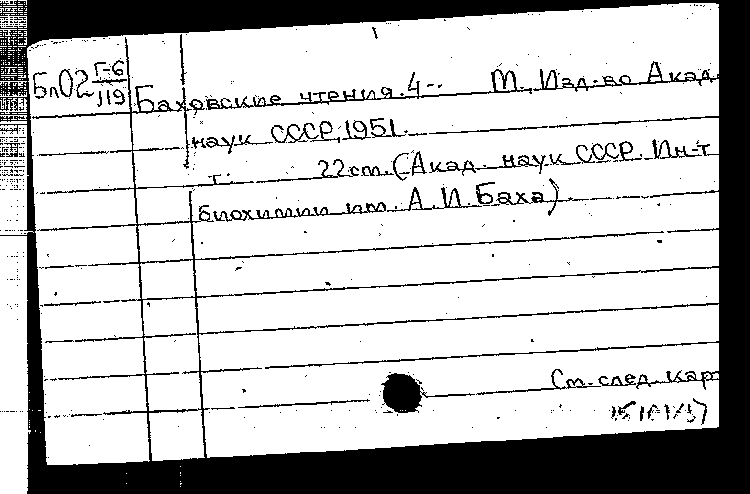 Бл02 Г-6
119
Баховские чтения. 4- М., Изд-во Акад.
наук СССР, 1951.
т. 22см. (Акад. наук СССР. Ин-т
биохимии им. А.И. Баха).
См. след. кар